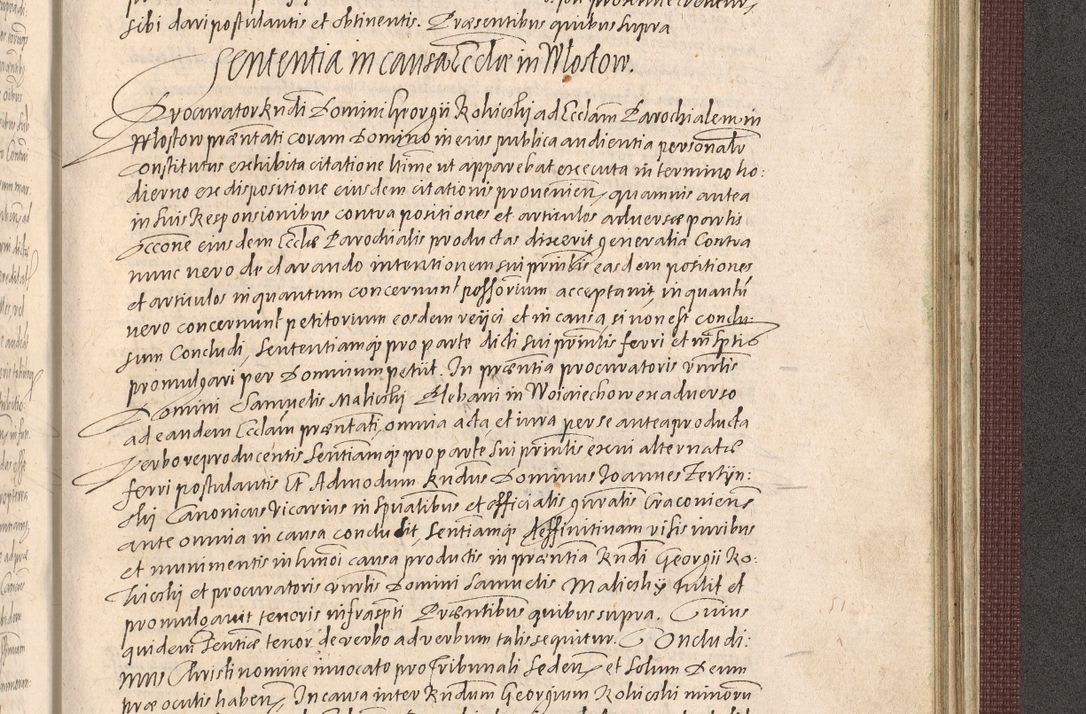 sibi dari postulantis et obtinentis. Præsentibus quibus supra
Sententia in causa Eccliæ in Włostow.
Procurator Rndi Domini Georgii Rohiczki ad Ecclam Parochialem in
Włostow præntati coram Domino in eius publica audientia personalr
constitutus exhibita citatione hmc ut apparebat executa in termino ho:
dierno ex dispositione eiusdem citationis provenien, quamuis antea
in suis Responsionibus contra positiones et articulos adversæ partis
occone eiusdem Eccliæ Parochialis productas dixerit generalia Contra
nunc vero declarando intentionem sui prinlis easdem positiones
et articulos in quantum concernunt possorium acceptavit, in quantũ
vero concernunt petitorium eosdem reijci et in causa si non est conclu:
sum Concludi, Sententiamq̃ pro parte dicti sui prinlis ferri et in sptis
promulgari per Dominum petiit. In præntia procuratoris vnrlis
Domini Samuelis Maliczki Plebani in Woiciechow ex adverso
ad eandem Ecclam præntati, omnia acta et iura per se antea producta
verbo reproducentis Sentiamq̃ pro parte sui prinlis exivi alternatæ
ferri postulantis Et Admodum Rndus Dominus Joannes Fortÿn:
ski Canonicus Vicarius in Spualibus et officialis gnralis Cracoviens
ante omnia in causa conclusit, Sentiamq̃ deffinitivam visis iuribus
et munimentis in hmoi causa productis in præntia Rndi Georgii Ro:
hiczki et procuratoris vnrlis Domini Samuelis Maliczkÿ tulit et
promulgavit tenoris infrascpti Præntibus quibus supra. Cuius
quidem Sentiæ tenor de verbo ad verbum talis sequitur. Concludi:
mus Christi nomine invocato pro Tribunali Seden, et Solum Deum
præ oculis haben, In causa inter Rndum Georgium Rohiczki minorũ